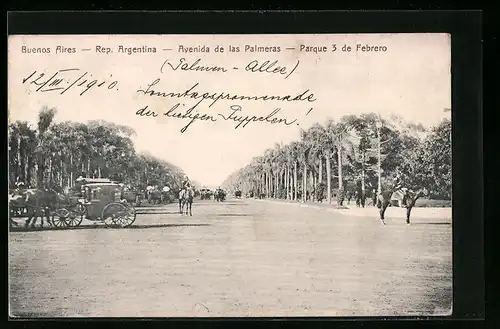 Buenos Aires — Rep. Argentina — Avenida de las Palmeras — Parque 3 de Febrero
(Palmen - Allee)
12/III. 1910.
Sonntagspromenade
der hiesigen Puppelen!